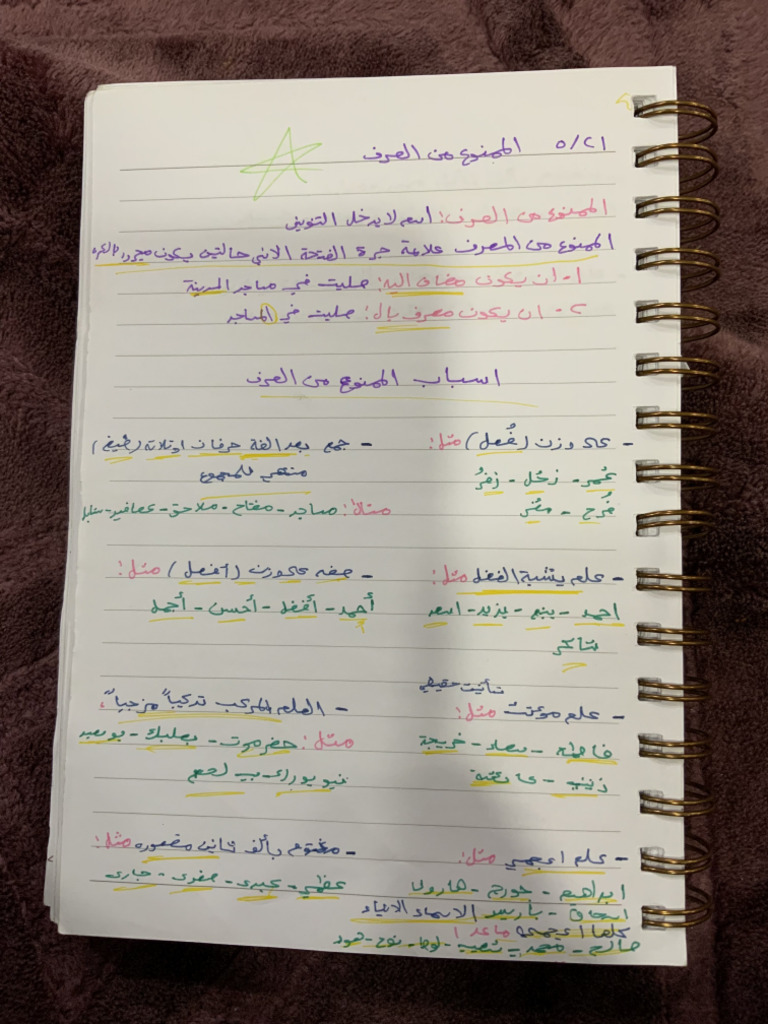 ٥/٢١ الممنوع من الصرف
الممنوع من الصرف: اسم لا يدخل التنوين
الممنوع من الصرف علامة جرة الفتحة الا في حالتين يكون مجرور بالكسره
١- ان يكون مضاف اليه: صليت في مساجد المدينة
٢- ان يكون معرف بال: صليت في المساجد
اسباب الممنوع من الصرف
- على وزن (فُعل) مثل:
عُمر - زحُل - زفرُ
قُزح - مضُر
- جمع بعد الفة حرفان او ثلاثة
منتهى للجموع
مثلاً: مساجد - مفتاح - ملاحق - عصافير -
- علم يشبة الفعل مثل:
احمد - ينبع - يزيد - اسعد
شاكر
- صفه على وزن (أفعل) مثل:
أحمد - أفضل - أحسن - أجمل
تأنيث حقيقي
- علم مؤنث مثل:
فاطمة - سعاد - خديجة
زينب - عائشة
- العلم المركب تركيباً مزجياً،
مثل: حضرموت - بعلبك - بورسعيد
نيويورك - بيت لحم
- علم اعجمي مثل:
ابراهيم - جورج - هارون
اسحاق - باريس الاسماء الانبياء
كلها اعجمية ماعدا
صالح - محمد - شعيب - لوط - نوح - هود
- مختوم بألف تأنيث مقصوره مثل:
عظمى - كبرى - صغرى - حبارى